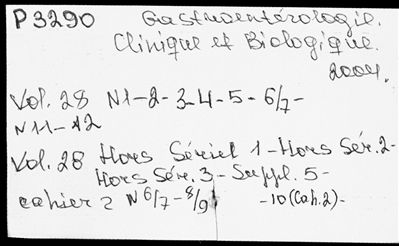 P3290 Gastroentérologie.
Clinique et Biologique.
2004.
Vol. 28 N1-2-3-4-5-6/7-
N11-12
Vol. 28 Hors Sériel 1-Hors Sér. 2-
Hors Sér. 3-Suppl. 5-
cahier 2 N6/7-8/9 -10(Cah. 2)-